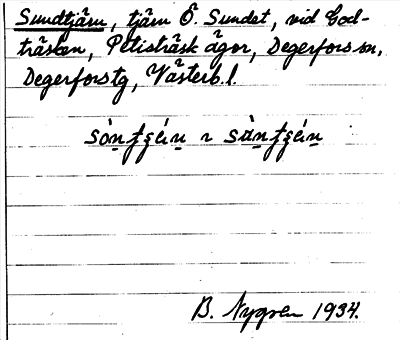 Sundtjärn, tjärn Ö. Sundet, vid God-
träsken, Petisträsk ägor, Degerfors sn,
Degerfors tg, Västerb.l.
B. Nygren 1934.